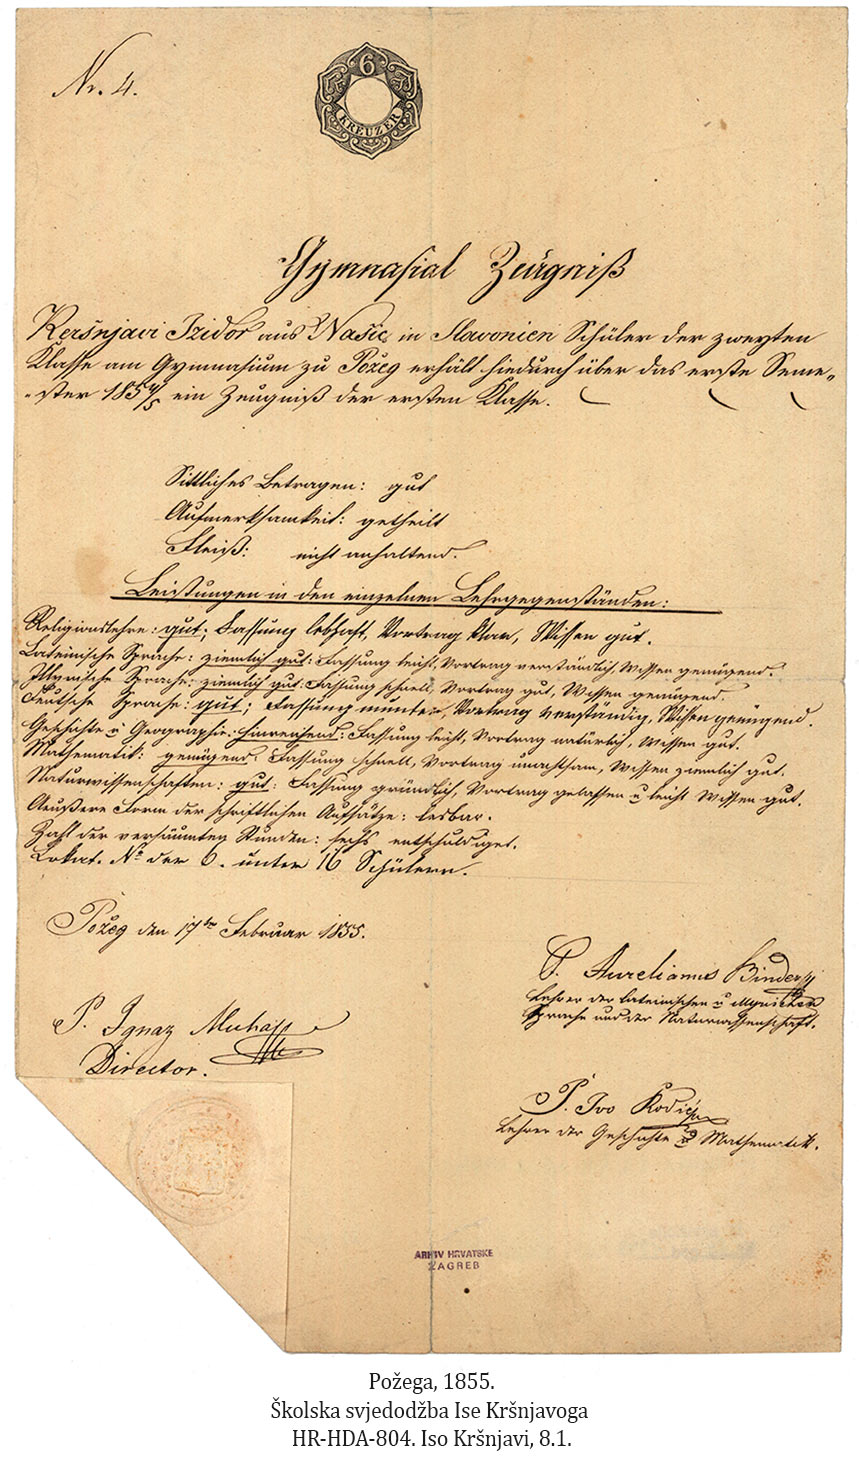 Nr. 4.
6
KREUZER
Gymnasial Zeugniß
Keršnjavi Izidor aus Našic in Slavonien Schüler der zweyten
Klasse am Gymnasium zu Požeg erhält hiedurch über das erste Seme„
„ster 1854/5 ein Zeugniß der ersten Klasse.
Sittliches Betragen: gut
Aufmerksamkeit: getheilt
Fleiß: nicht anhaltend.
Leistungen in den einzelnen Lehrgegenständen:
Religionslehre: gut; Fassung lebhaft, Vortrag klar, Wissen gut.
Lateinische Sprache: ziemlich gut: Fassung leicht, Vortrag verständlich, Wissen genügend.
Illyrische Sprache: ziemlich gut: Fassung schnell, Vortrag gut, Wissen genügend.
Deutsche Sprache: gut; Fassung munter, Vortrag verständig, Wissen genügend.
Geschichte u Geographie: hinreichend: Fassung leicht, Vortrag natürlich, Wissen gut.
Mathematik: genügend. Fassung schnell, Vortrag unachtsam, Wissen ziemlich gut.
Naturwissenschaften: gut: Fassung gründlich, Vortrag gelassen u leicht Wissen gut.
Aeußere Form der schriftlichen Aufsätze: lesbar.
Zahl der versäumten Stunden: sechs entschuldiget.
Lokat. No der 6. unter 16 Schülern.
Požeg den 17ten Februar 1855.
P. Aurelianus Binder
Lehrer der lateinischen u illyrischen
Sprache und der Naturwissenschaft.
P. Ignaz
Director.
P. Ivo
Lehrer der Geschichte u Mathematik.
ARHIV HRVATSKE
ZAGREB
Požega, 1855.
Školska svjedodžba Ise Kršnjavoga
HR-HDA-804. Iso Kršnjavi, 8.1.